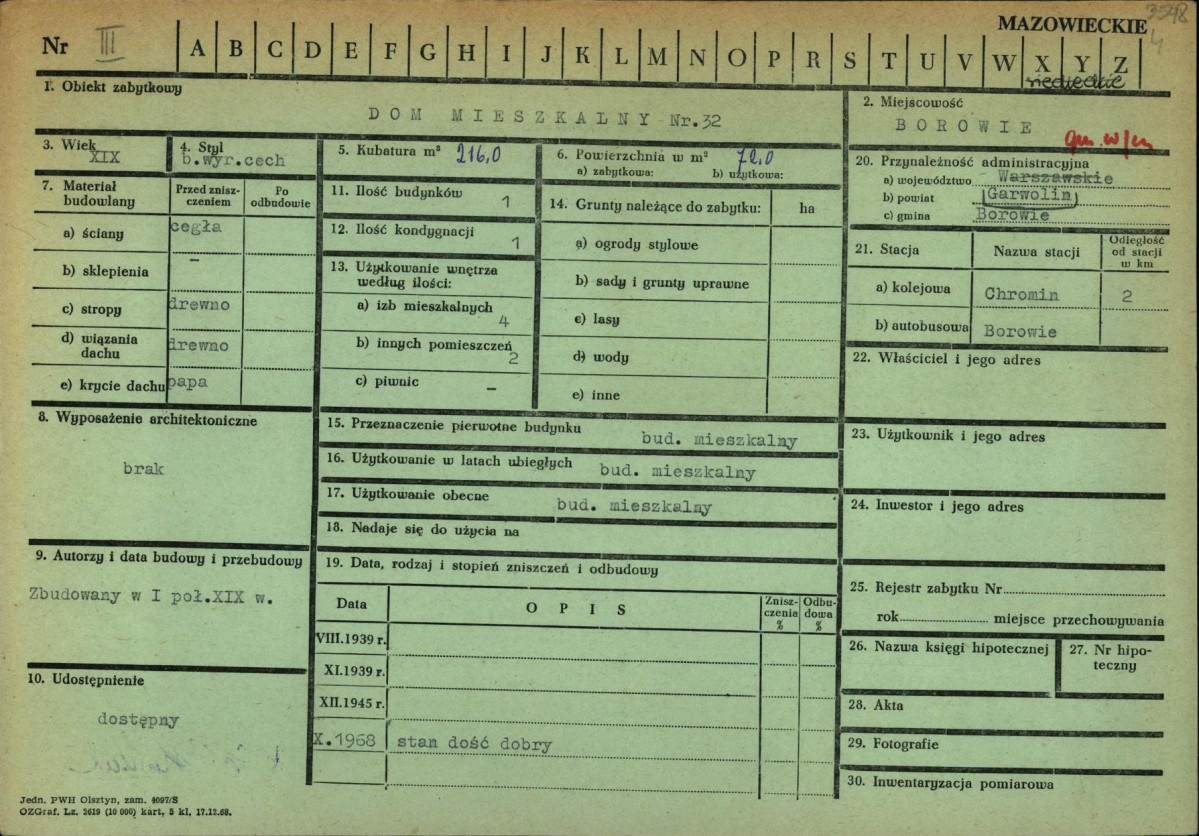 3548
4
MAZOWIECKIE
Nr III A B C D E F G H I J K L M N O P R S T U V W X Y Z
siedleckie
1. Obiekt zabytkowy
DOM MIESZKALNY Nr.32
2. Miejscowość
BOROWIE
gm. w/m
3. Wiek
XIX
4. Styl
b.wyr.cech
5. Kubatura m³ 216,0
6. Powierzchnia w m² 72,0
a) zabytkowa: b) użytkowa:
7. Materiał budowlany
Przed zniszczeniem
Po odbudowie
a) ściany cegła
b) sklepienia –
c) stropy drewno
d) wiązania dachu drewno
e) krycie dachu papa
8. Wyposażenie architektoniczne
brak
9. Autorzy i data budowy i przebudowy
Zbudowany w I poł.XIX w.
10. Udostępnienie
dostępny
11. Ilość budynków 1
12. Ilość kondygnacji 1
13. Użytkowanie wnętrza według ilości:
a) izb mieszkalnych 4
b) innych pomieszczeń 2
c) piwnic –
14. Grunty należące do zabytku: ha
a) ogrody stylowe
b) sady i grunty uprawne
c) lasy
d) wody
e) inne
15. Przeznaczenie pierwotne budynku bud. mieszkalny
16. Użytkowanie w latach ubiegłych bud. mieszkalny
17. Użytkowanie obecne bud. mieszkalny
18. Nadaje się do użycia na
19. Data, rodzaj i stopień zniszczeń i odbudowy
Data OPIS Zniszczenia % Odbudowa %
VIII.1939 r.
XI.1939 r.
XII.1945 r.
X.1968 stan dość dobry
20. Przynależność administracyjna
a) województwo Warszawskie
b) powiat Garwolin
c) gmina Borowie
21. Stacja Nazwa stacji Odległość od stacji w km
a) kolejowa Chromin 2
b) autobusowa Borowie
22. Właściciel i jego adres
23. Użytkownik i jego adres
24. Inwestor i jego adres
25. Rejestr zabytku Nr
rok miejsce przechowywania
26. Nazwa księgi hipotecznej
27. Nr hipoteczny
28. Akta
29. Fotografie
30. Inwentaryzacja pomiarowa
Jedn. PWH Olsztyn, zam. 4097/S
OZGraf. Lz. 2619 (10 000) kart, 5 kl. 17.12.68.